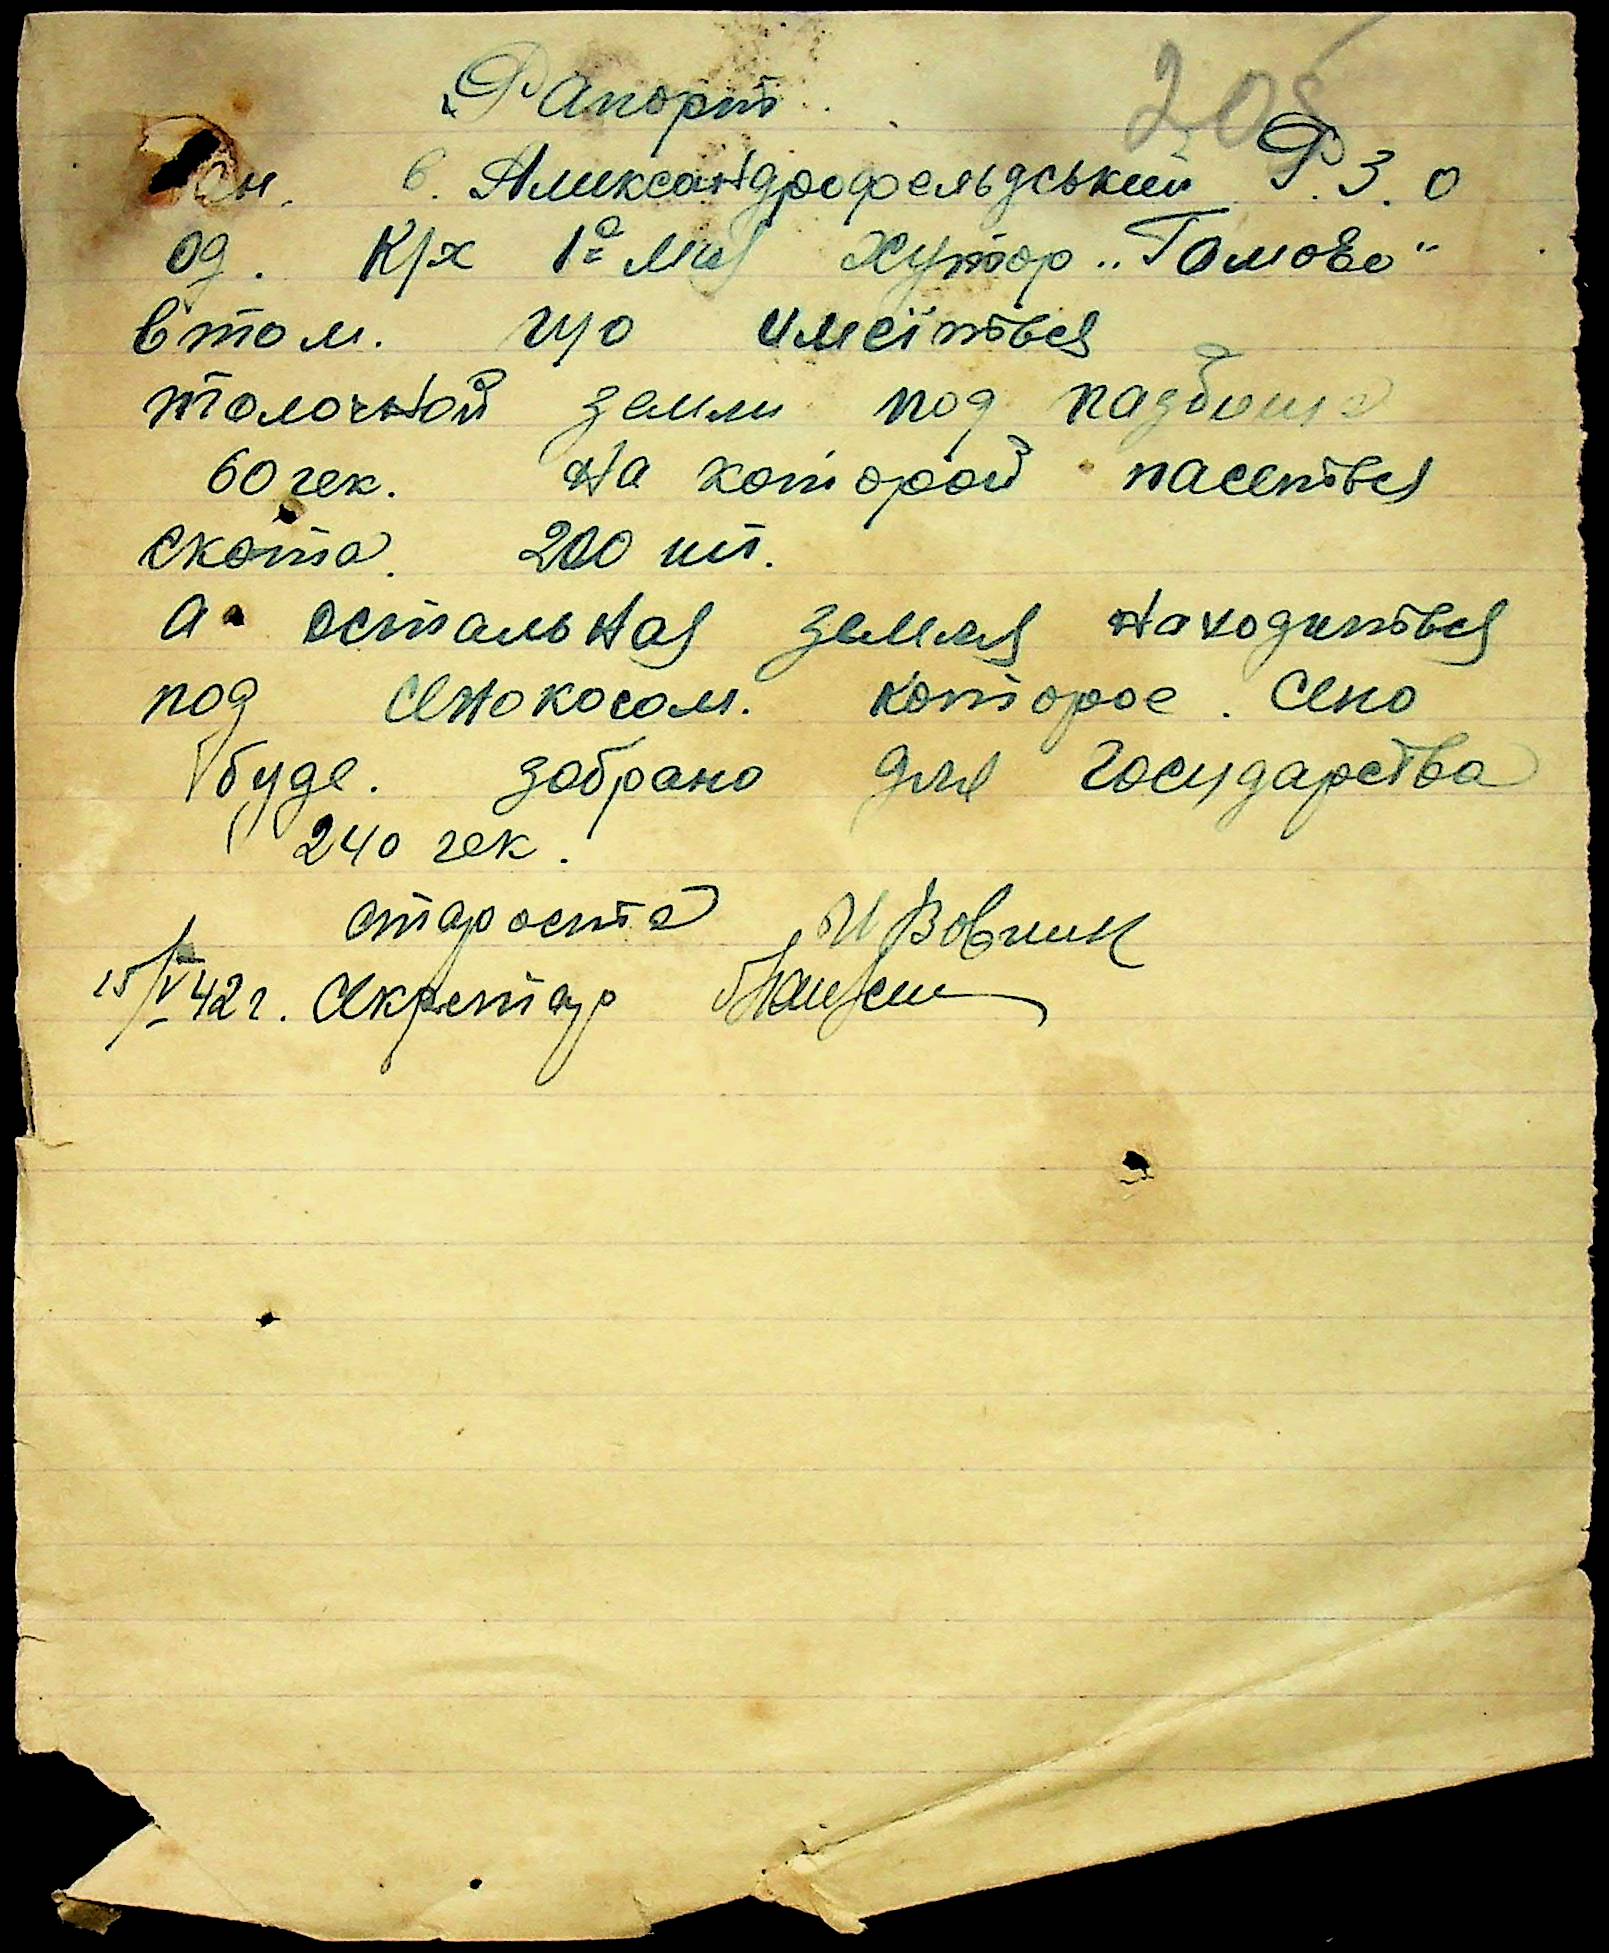 205
Рапорт
в. Александрофельдський Р.З.О
од. К/х 1го Мая хутор „Гамово"
втом. що имеїться
толочной земли под пазбище
60 гек. на которой пасеться
скота. 200 шт.
а остальная земля находиться
под сенокосом. которое. сено
буде. забрано для государства
240 гек.
староста И Вовчик
15/V 42 г. Секретар